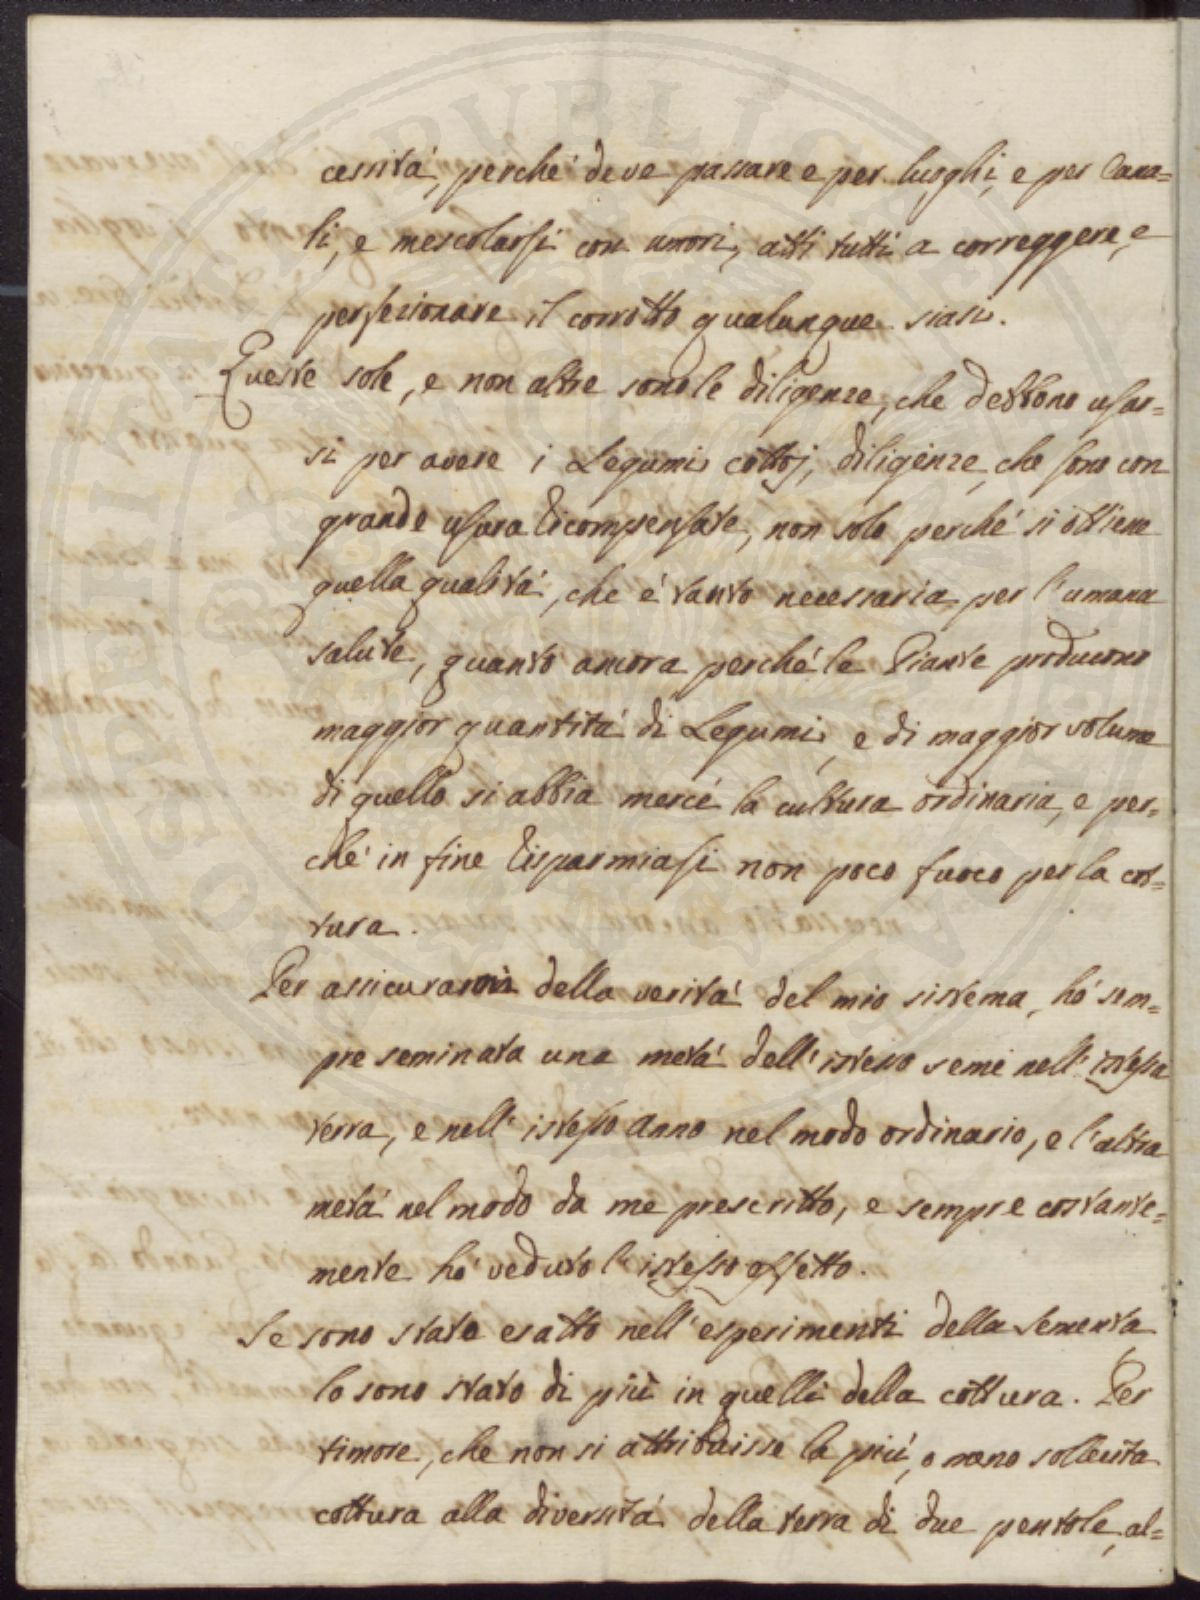 cessità, perché deve passare e per luoghi, e per Cana=
li, e mescolarsi con umori, atti tutti a correggere, e
perfezionare il corrotto qualunque siasi.
Queste sole, e non altre sono le diligenze, che debbono usar=
si per avere i Legumi cottoj, diligenze, che sono con
grande usura ricompensate, non solo perché si ottiene
quella qualità, che é tanto necessaria per l'umana
salute, quanto ancora perché le Piante producono
maggior quantità di Legumi, e di maggior volume
di quello si abbia mercé la cultura ordinaria, e per=
ché in fine risparmiasi non poco fuoco per la cot=
tura.
Per assicurarmi della verità del mio sistema, hó sem=
pre seminata una metà dell'istesso seme nell'istessa
terra, e nell'istesso anno nel modo ordinario, e l'altra
metà nel modo da me prescritto, e sempre costante=
mente hó veduto l'istesso effetto.
Se sono stato esatto nell'esperimenti della Sementa
lo sono stato di più in quelli della cottura. Per
timore, che non si attribuisse la più, o meno sollecita
cottura alla diversità della terra di due pentole, al=